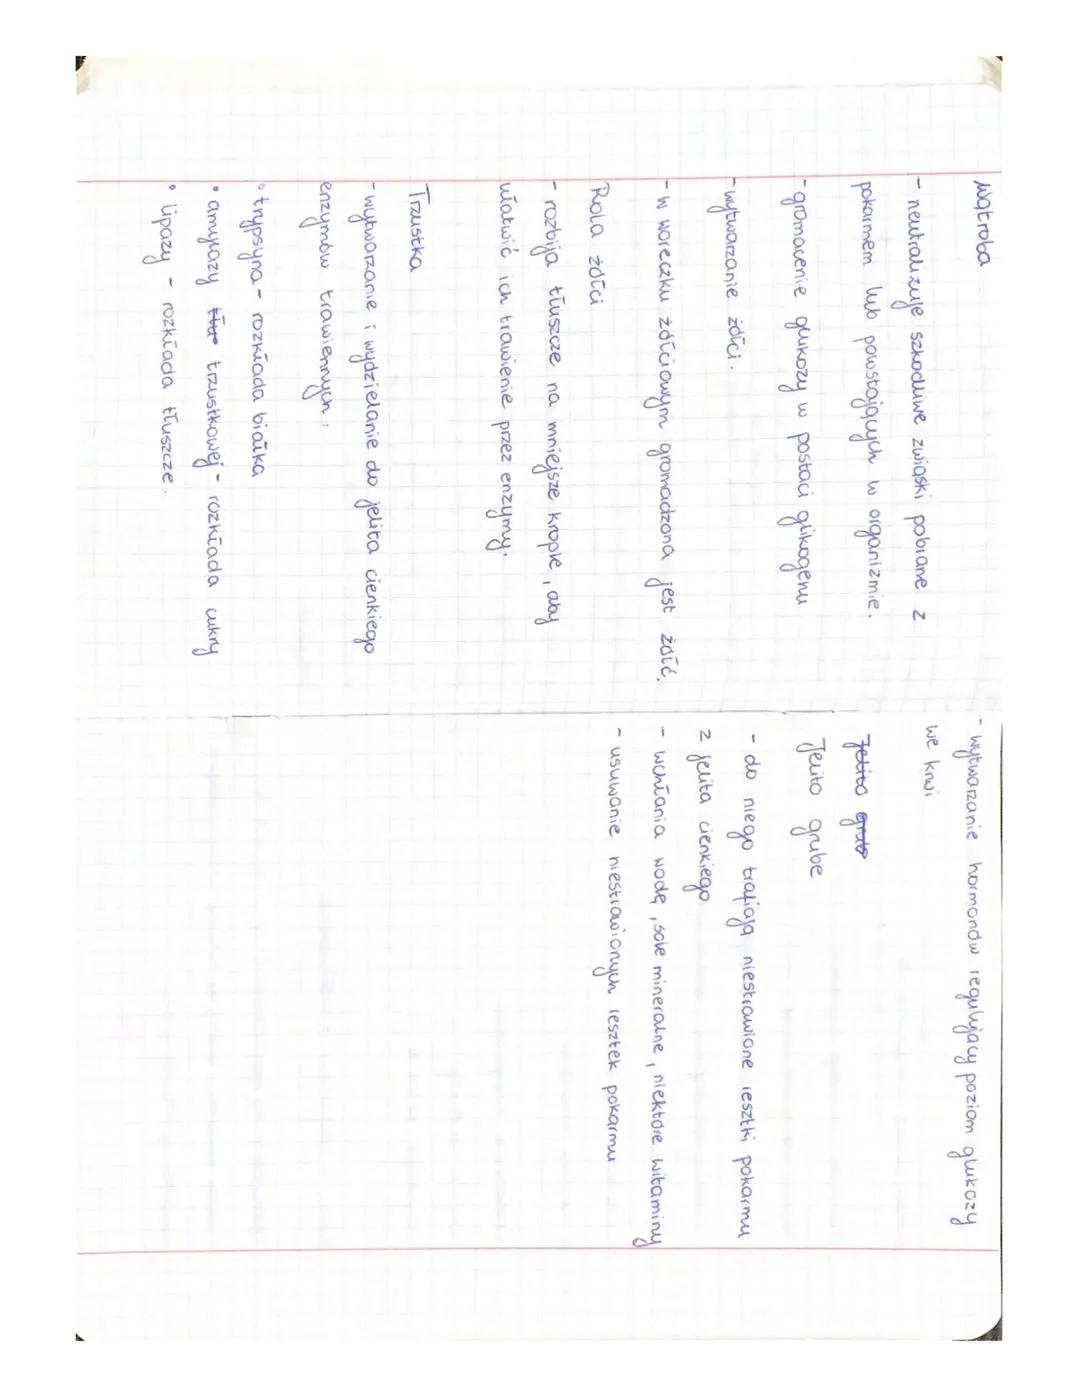 Wątroba
- neutralizuje szkodliwe związki pobrane z
pokarmem lub powstających w organizmie.
- gromacenie glukozy w postaci glikogenu
- wytwarzanie żółci.
- w woreczku żółciowym gromadzona jest żółć.
Rola żółci
- rozbija tłuszcze na mniejsze krople, aby
ułatwić ich trawienie przez enzymy.
Trzustka
- wytwarzanie i wydzielanie do jelita cienkiego
enzymów trawiennych:
• trypsyna - rozkłada białka
• amylazy tłu trzustkowej - rozkłada cukry
• lipazy - rozkłada tłuszcze.
- wytwarzanie hormonów regulujący poziom glukozy
we krwi
Jelito grub
Jelito grube
- do niego trafiają niestrawione resztki pokarmu
z jelita cienkiego
- wchłania wodę, sole mineralne, niektóre witaminy
- usuwanie niestrawionych resztek pokarmu